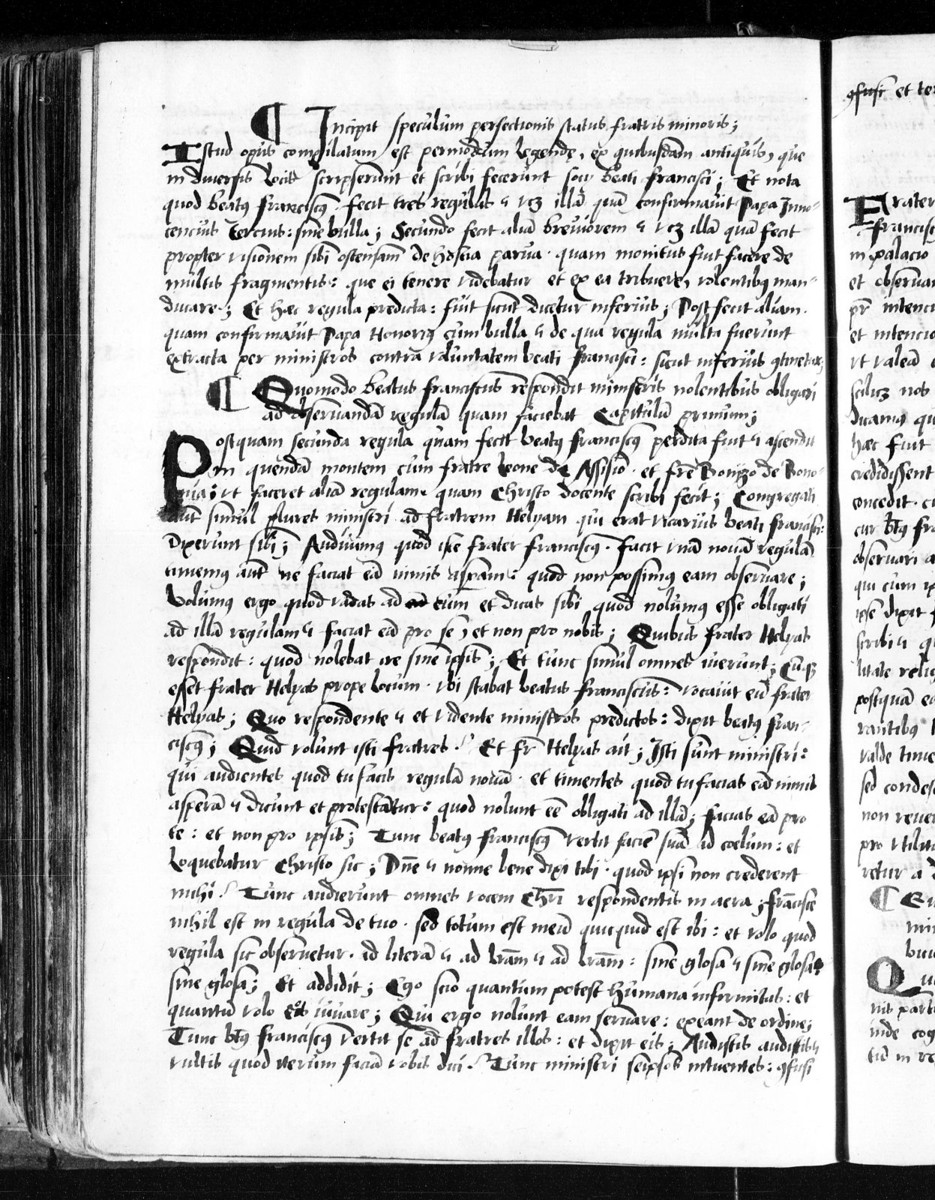 ¶ Incipit speculum perfectionis status fratris minoris;
Istud opus compilatum est per modum legendę, ex quibusdam antiquis, que
in diversis locis scripserunt et scribi fecerunt socii beati francisci; Et nota
quod beatꝰ Franciscꝰ fecit tres regulas, vcz illã quã confirmavit Papa Inno-
centius tercius: sine bulla; Secundo fecit aliã breviorem, vcz illã quã fecit
propter visionem sibi ostensam de hostia parva. quam monitus fuit facere de
multis fragmentis: que ei tenere videbatur et ex ea tribuere, volentibꝰ man-
ducare; Et hæc regula predicta: fuit sicut dicetur inferius; Post fecit aliam.
quam confirmavit Papa Honoriꝰ cum bulla, de qua regula multa fuerunt
extracta per ministros contra voluntatem beati francisci: sicut inferius ꝯtinetur
¶ Quomodo beatus franciscus respondit ministris nolentibus obligari
ad observandã regulã quam faciebat Capitulũ primum;
Postquam secunda regula quam fecit beatꝰ franciscꝰ perdita fuit, ascendit
in quendã montem cum fratre leone de Assisio. et frẽ Bonizo de Bono-
nia: ut faceret aliã regulam. quam Christo docente scribi fecit; Congregati
aũt simul plures ministri ad fratrem Helyam qui erat vicarius beati francisci:
Dixerunt sibi; Audivimꝰ quod iste frater franciscꝰ. facit unã novã regulã
timemꝰ aũt ne faciat eã nimis asperam: quod non possimꝰ eam observare;
Volumꝰ ergo quod vadas ad eum et dicas sibi quod nolumꝰ esse obligati
ad illã regulam, faciat eã pro se, et non pro nobis; Quibus frater Helyas
respondit: quod nolebat ire sine ipsis; Et tunc simul omnes iverunt; Cũqꝫ
esset frater Helyas prope locum. ubi stabat beatus franciscus: vocavit eũ frater
Helyas; Quo respondente, et vidente ministros predictos: dixit beatꝰ fran-
ciscꝰ; Quid volunt isti fratres? Et fr̃ Helyas ait; Isti sunt ministri:
qui audientes quod tu facis regulã novã. et timentes quod tu facias eã nimis
asperã, dicunt et protestãtur: quod nolunt eẽ obligati ad illã; facias eã pro
te: et non pro ipsis; Tunc beatꝰ franciscꝰ vertit faciẽ suã ad cœlum: et
loquebatur Christo sic; Dñe, nonne bene dixi tibi. quod ipsi non crederent
mihi? Tunc audierunt omnes vocem Chr̃i respondentis in aera; frãcisce
nihil est in regula de tuo. sed totum est meũ quicquid est ibi: et volo quod
regula sic observetur. ad literã, ad lr̃am, ad lr̃am: sine glosa, sine glosa,
sine glosa; Et addidit; Ego scio quantum potest humana infirmitas: et
quantũ volo eos iuvare; Qui ergo nolunt eam servare: exeant de ordine;
Tunc btꝰ franciscꝰ vertit se ad fratres illos: et dixit eis; Audistis audistis,
vultis quod iterum faciã vobis dici? Tunc ministri seipsos intuentes: ꝯfusi